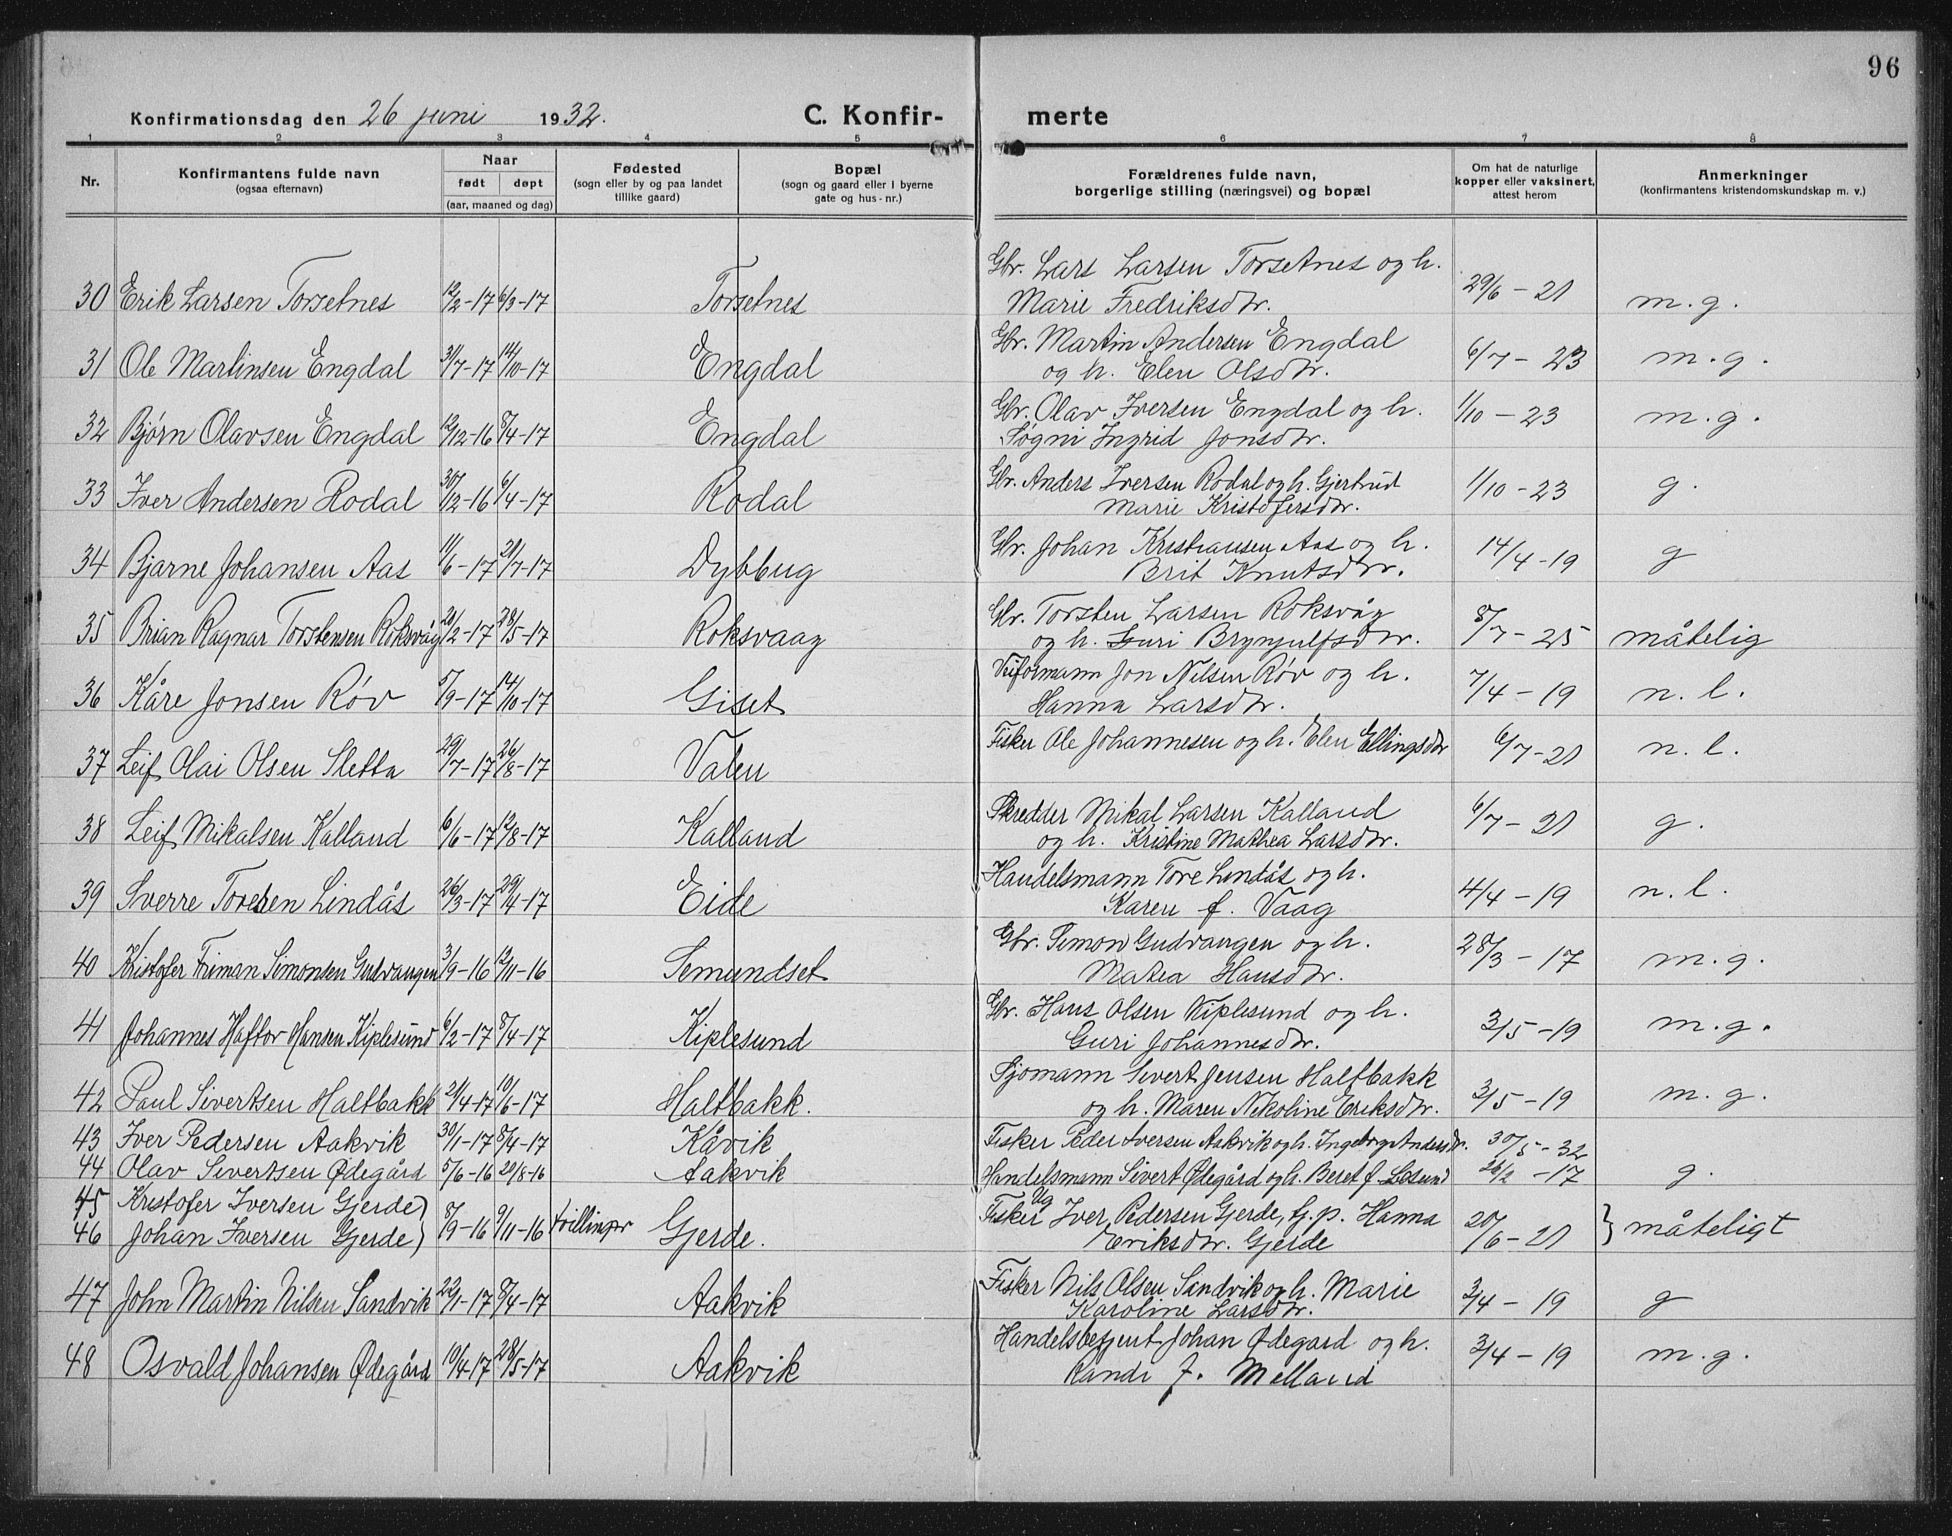 96
Konfirmationsdag den 26 juni 1932.
C. Konfirmerte
1 2 3 4 5 6 7 8
Nr. | Konfirmantens fulde navn (ogsaa efternavn) | Naar født døpt (aar, maaned og dag) | Fødested (sogn eller by og paa landet tillike gaard) | Bopæl (sogn og gaard eller i byerne gate og hus-nr.) | Forældrenes fulde navn, borgerlige stilling (næringsvei) og bopæl | Om hat de naturlige kopper eller vaksinert, attest herom | Anmerkninger (konfirmantens kristendomskundskap m. v.)
30 Erik Larsen Torsetnes 12/2-17 6/3-17 Torsetnes Gbr. Lars Larsen Torsetnes og h. Marie Fredriksdtr. 29/6-21 m.g.
31 Ole Martinsen Engdal 31/7-17 14/10-17 Engdal Gbr. Martin Andersen Engdal og h. Elen Olsdtr. 6/7-23 m.g.
32 Bjørn Olavsen Engdal 12/12-16 8/4-17 Engdal Gbr. Olav Iversen Engdal og h. Søgni Ingrid Jonsdtr. 1/10-23 m.g.
33 Iver Andersen Rodal 30/12-16 6/4-17 Rodal Gbr. Anders Iversen Rodal og h. Gjertrud Marie Kristofersdtr. 1/10-23 g.
34 Bjarne Johansen Aas 11/6-17 21/7-17 Dybbug Gbr. Johan Kristiansen Aas og h. Brit Knutsdtr. 14/4-19 g
35 Brian Ragnar Torstensen Roksvåg 21/2-17 28/5-17 Roksvaag Gbr. Torsten Larsen Roksvåg og h. Guri Brynjulfsdtr. 8/7-25 måtelig
36 Kåre Jonsen Røv 5/9-17 14/10-17 Giset Veiformann Jon Nilsen Røv og h. Hanna Larsdtr. 7/4-19 n.l.
37 Leif Olai Olsen Sletta 29/7-17 26/8-17 Valen Fisker Ole Johannesen og h. Elen Ellingsdtr 6/7-21 n.l.
38 Leif Mikalsen Kalland 6/6-17 12/8-17 Kalland Skredder Mikal Larsen Kalland og h. Kristine Mathea Larsdtr. 6/7-21 g.
39 Sverre Toresen Lindås 26/3-17 29/4-17 Eide Handelsmann Tore Lindås og h. Karen f. Vaag 4/4-19 n.l.
40 Kristofer Friman Simonsen Gudvangen 3/9-16 12/11-16 Semundset Gbr. Simon Gudvangen og h. Matea Hansdtr. 28/3-17 m.g.
41 Johannes Haftor Hansen Kiplesund 6/2-17 8/4-17 Kiplesund Gbr. Hans Olsen Kiplesund og h. Guri Johannesdtr. 3/5-19 m.g.
42 Paul Sivertsen Halfbakk 21/4-17 10/6-17 Halfbakk. Sjømann Sivert Jensen Halfbakk og h. Maren Nikoline Eriksdtr. 3/5-19 m.g.
43 Iver Pedersen Aakvik 30/1-17 8/4-17 Kåvik Fisker Peder Iversen Aakvik og h. Ingeborg Andersdtr. 30/5-32
44 Olav Sivertsen Ødegård 5/6-16 20/8-16 Aakvik Handelsmann Sivert Ødegård og h. Beret f. 26/2-17 g.
45 Kristofer Iversen Gjerde)
46 Johan Iversen Gjerde) 8/9-16 9/11-16 tvillinger Gjerde. Fisker Ug Iver Pedersen Gjerde, G.p. Hanna Eriksdtr. Gjerde 20/6-21 } måteligt
47 John Martin Nilsen Sandvik 22/1-17 8/4-17 Aakvik Fisker Nils Olsen Sandvik og h. Marie Karoline Larsdtr. 3/4-19 g
48 Osvald Johansen Ødegård 10/4-17 28/5-17 Aakvik Handelsbetjent Johan Ødegård og h. Randi f. Melland 3/4-19 m.g.